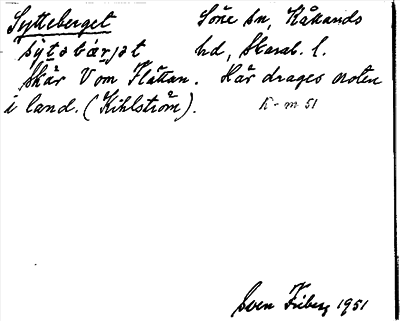 Sytteberget Söne sn, Kållands
sỳtəbǽrjət hd, Skarab. l.
skär V om Flättan. Här drages noten
i land. (Kihlström). K-m 51
Sven Friberg 1951